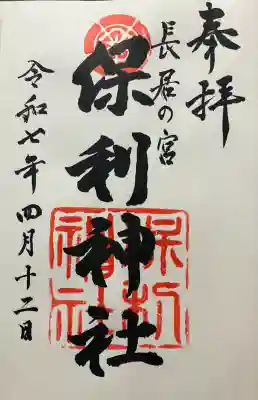 奉拝
長居の宮
保利神社
令和七年四月十二日